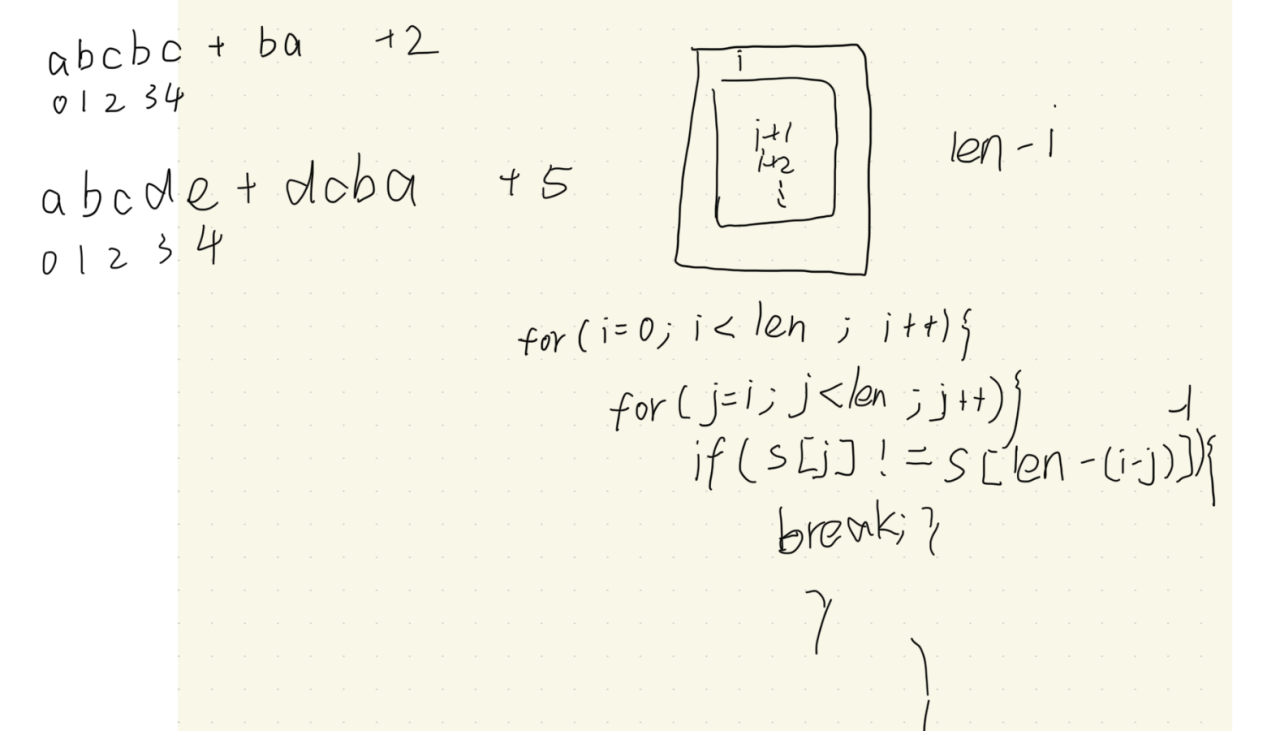 abcbc + ba +2
0 1 2 3 4
abcde + dcba + 5
0 1 2 3 4
i
i+1
i+2
len - i
for ( i = 0; i < len ; i++){
for ( j = i; j < len ; j++){
-1
if ( s[j] != s[len - (i-j)]){
break; }
}
}